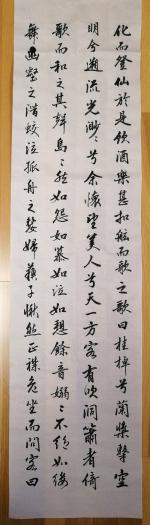 化而登仙於是飲酒樂甚扣舷而歌之歌曰桂棹兮蘭槳擊空
明兮遡流光渺〻兮余懷望美人兮天一方客有吹洞簫者倚
歌而和之其聲嗚〻然如怨如慕如泣如愬餘音嫋〻不絕如縷
舞幽壑之潛蛟泣孤舟之嫠婦蘇子愀然正襟危坐而問客曰